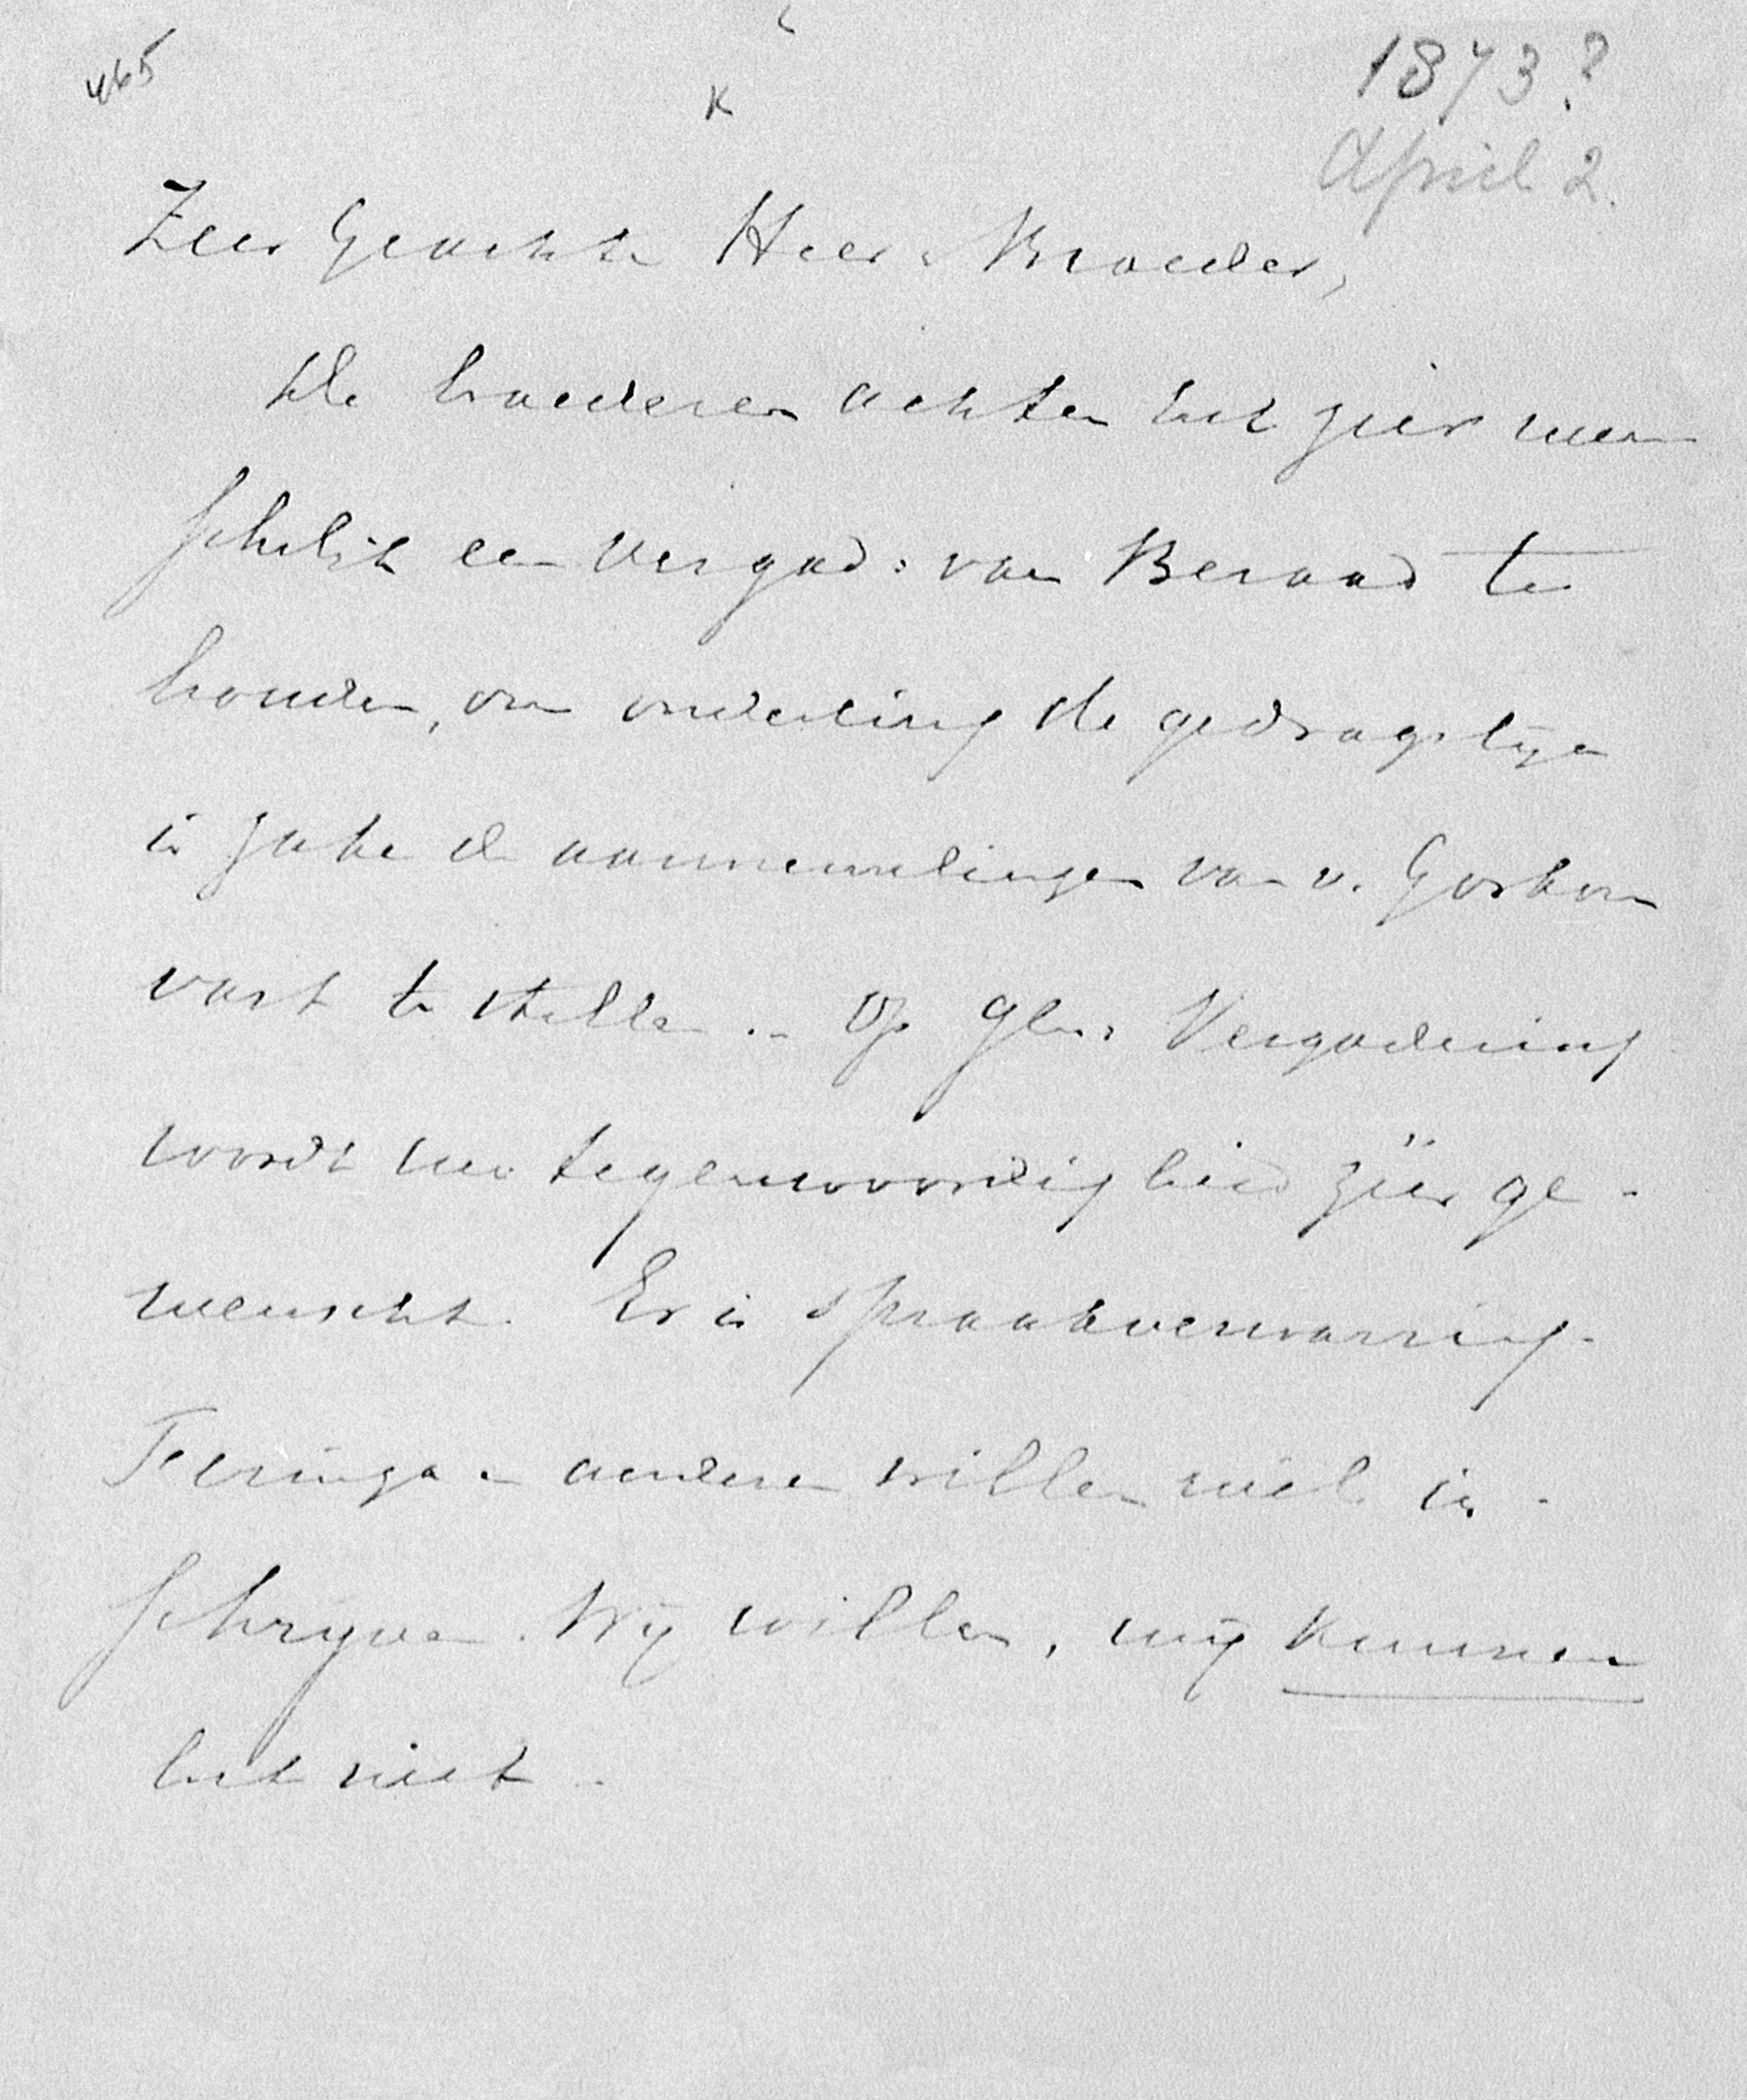 465
K
1873?
April 2.
Zeer Geachte Heer & Broeder,
De broederen achten het zeer wen
schelijk een Vergad: van Beraad te
houden, om onderling de gedragslijn
in zake de aannemelingen van v. Gorkom
vast te stellen. – Op Vergadering
wordt uw tegenwoordigheid zéér ge-
wenscht. Er is spraakverwarring.
Feringa en andere willen niet in-
schrijven. Wij willen, wij kunnen
het niet.